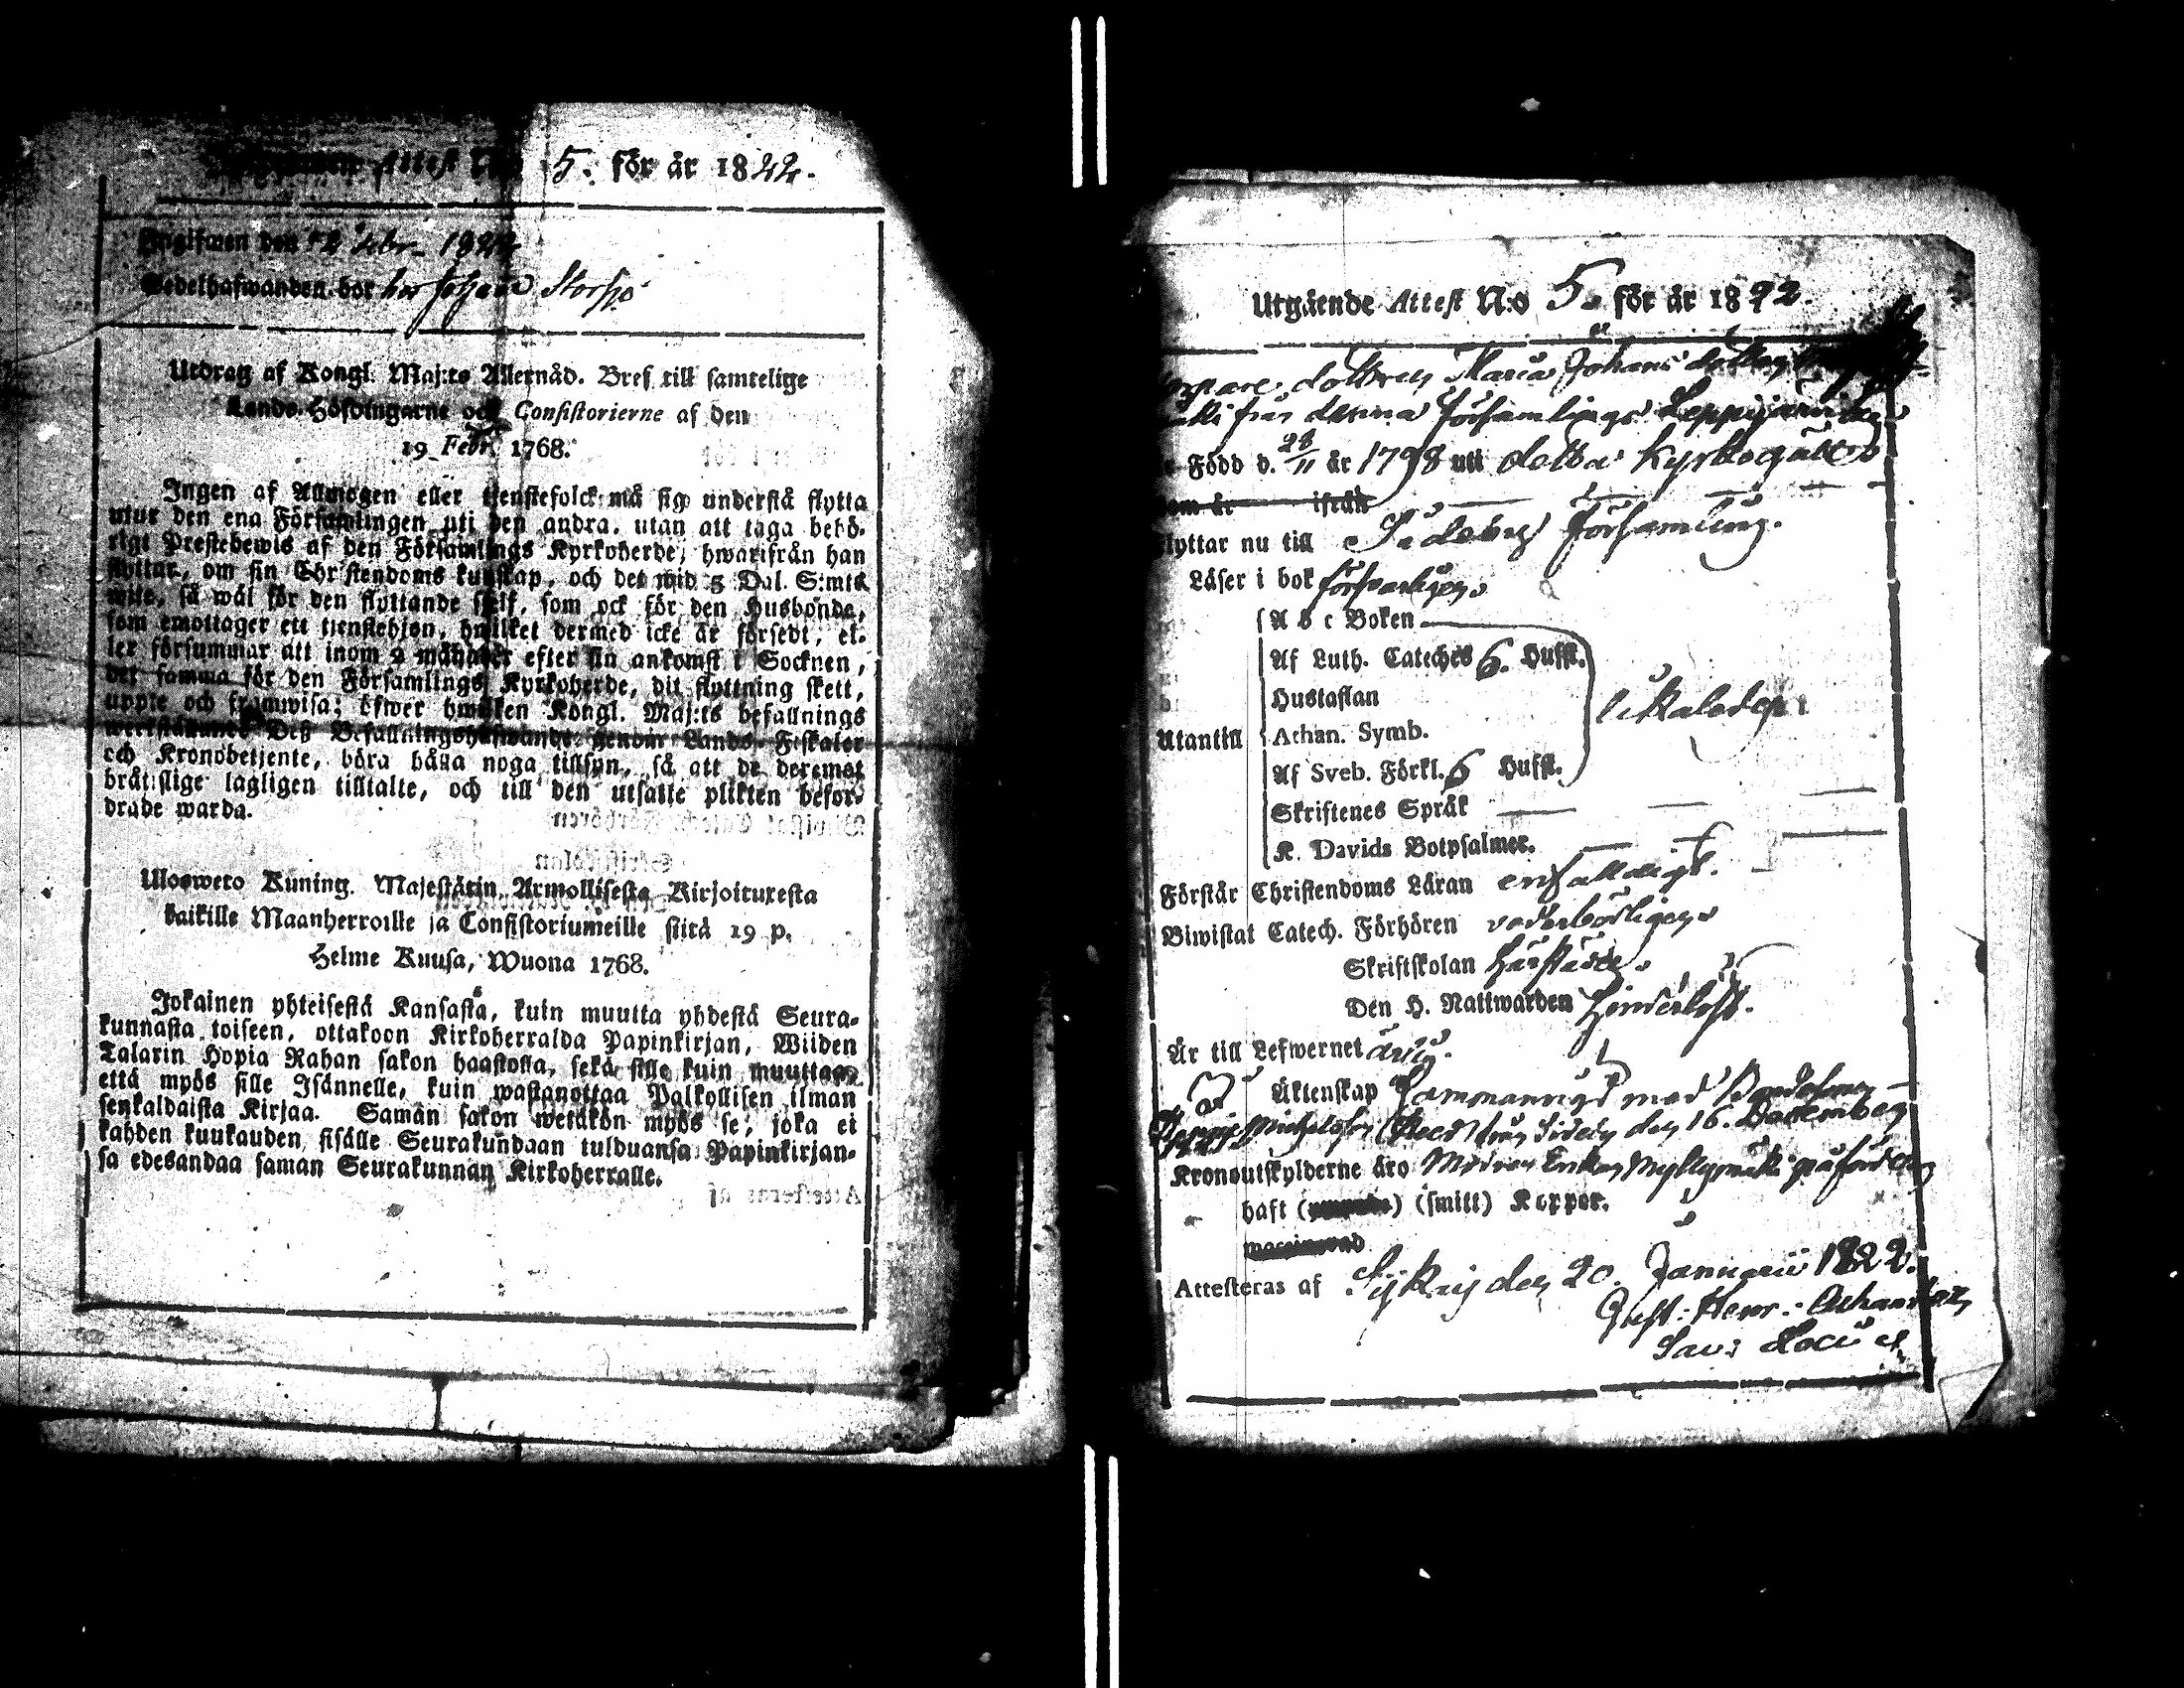 Attest N:o 5. för år 1822.
Ingifwen den 12 Febr. 1822
Sedelhafwanden bor hos Johan Storsjö
Utdrag af Kongl. Maj:ts Allernåd. Bref till samtelige
Lands-Höfdingarne och Consistorierne af den
19 Febr. 1768.
Ingen af Allmogen eller tjenstefolck må sig understå flytta
utur den ena Församlingen uti den andra, utan att taga behö-
rigt Prestebewis af den Församlings Kyrkoherde, hwarifrån han
flyttar, om sin Christendoms kunskap, och det wid 5 Dal. S:mts
wite, så wäl för den flyttande sjelf, som ock för den Husbonde,
som emottager ett tjenstehjon, hwilket dermed icke är försedt, el-
ler försummar att inom 2 månader efter sin ankomst i Socknen,
det samma för den Församlings Kyrkoherde, dit flyttning skett,
uppte och framwisa; öfwer hwilken Kongl. Maj:ts befallnings
werkställande Deß Befallningshafwande genom Lands-Fiskaler
och Kronobetjente, böra hålla noga tillsyn, så att de deremot
brätsslige lagligen tilltalte, och till den utsatte plikten befor-
drade warda.
Ulosweto Kuning. Majestätin Armollisesta Kirjoituxesta
kaikille Maanherroille ja Consistoriumeille siitä 19 p.
Helme Kuusa, Wuona 1768.
Jokainen yhteisestä Kansasta, kuin muutta yhdestä Seura-
kunnasta toiseen, ottakoon Kirkoherralda Papinkirjan, Wiiden
Talarin Hopia Rahan sakon haastolla, sekä sille kuin muuttaa,
että myös sille Isännelle, kuin wastanottaa Palkollisen ilman
senkaldaista Kirjaa. Saman sakon wetäkön myös se, joka ei
kahden kuukauden sisälle Seurakundaan tulduansa Papinkirjan-
sa edesandaa saman Seurakunnan Kirkoherralle.
Utgående Attest N:o 5. för år 1822.
dottren Maria Johans dotter
från denna Församlings
Född d. 28/11 år 1798 uti detta Kyrkogäll
om år ifrån
flyttar nu till Sideby Församling.
Läser i bok försvarligen
A b c Boken
Af Luth. Cateches 6. Hufst.
Hustaflan
Athan. Symb.
Utantill
Af Sveb. Förkl. 6 Hufst.
Skriftenes Språk
K. Davids Botpsalmer.
Förstår Christendoms Läran enfaldigt.
Biwistat Catech. Förhören vederbörligen
Skriftskolan härstädes
Den H. Nattwarden Hinderlöst.
Är till Lefwernet ärlig.
Äktenskap Sammanvigd med
Michelsson från Sideby den 16. December
Kronoutskylderne äro
haft (smitt) Koppor.
Attesteras af den 20. Januarii 1822.
Gust: Henr: